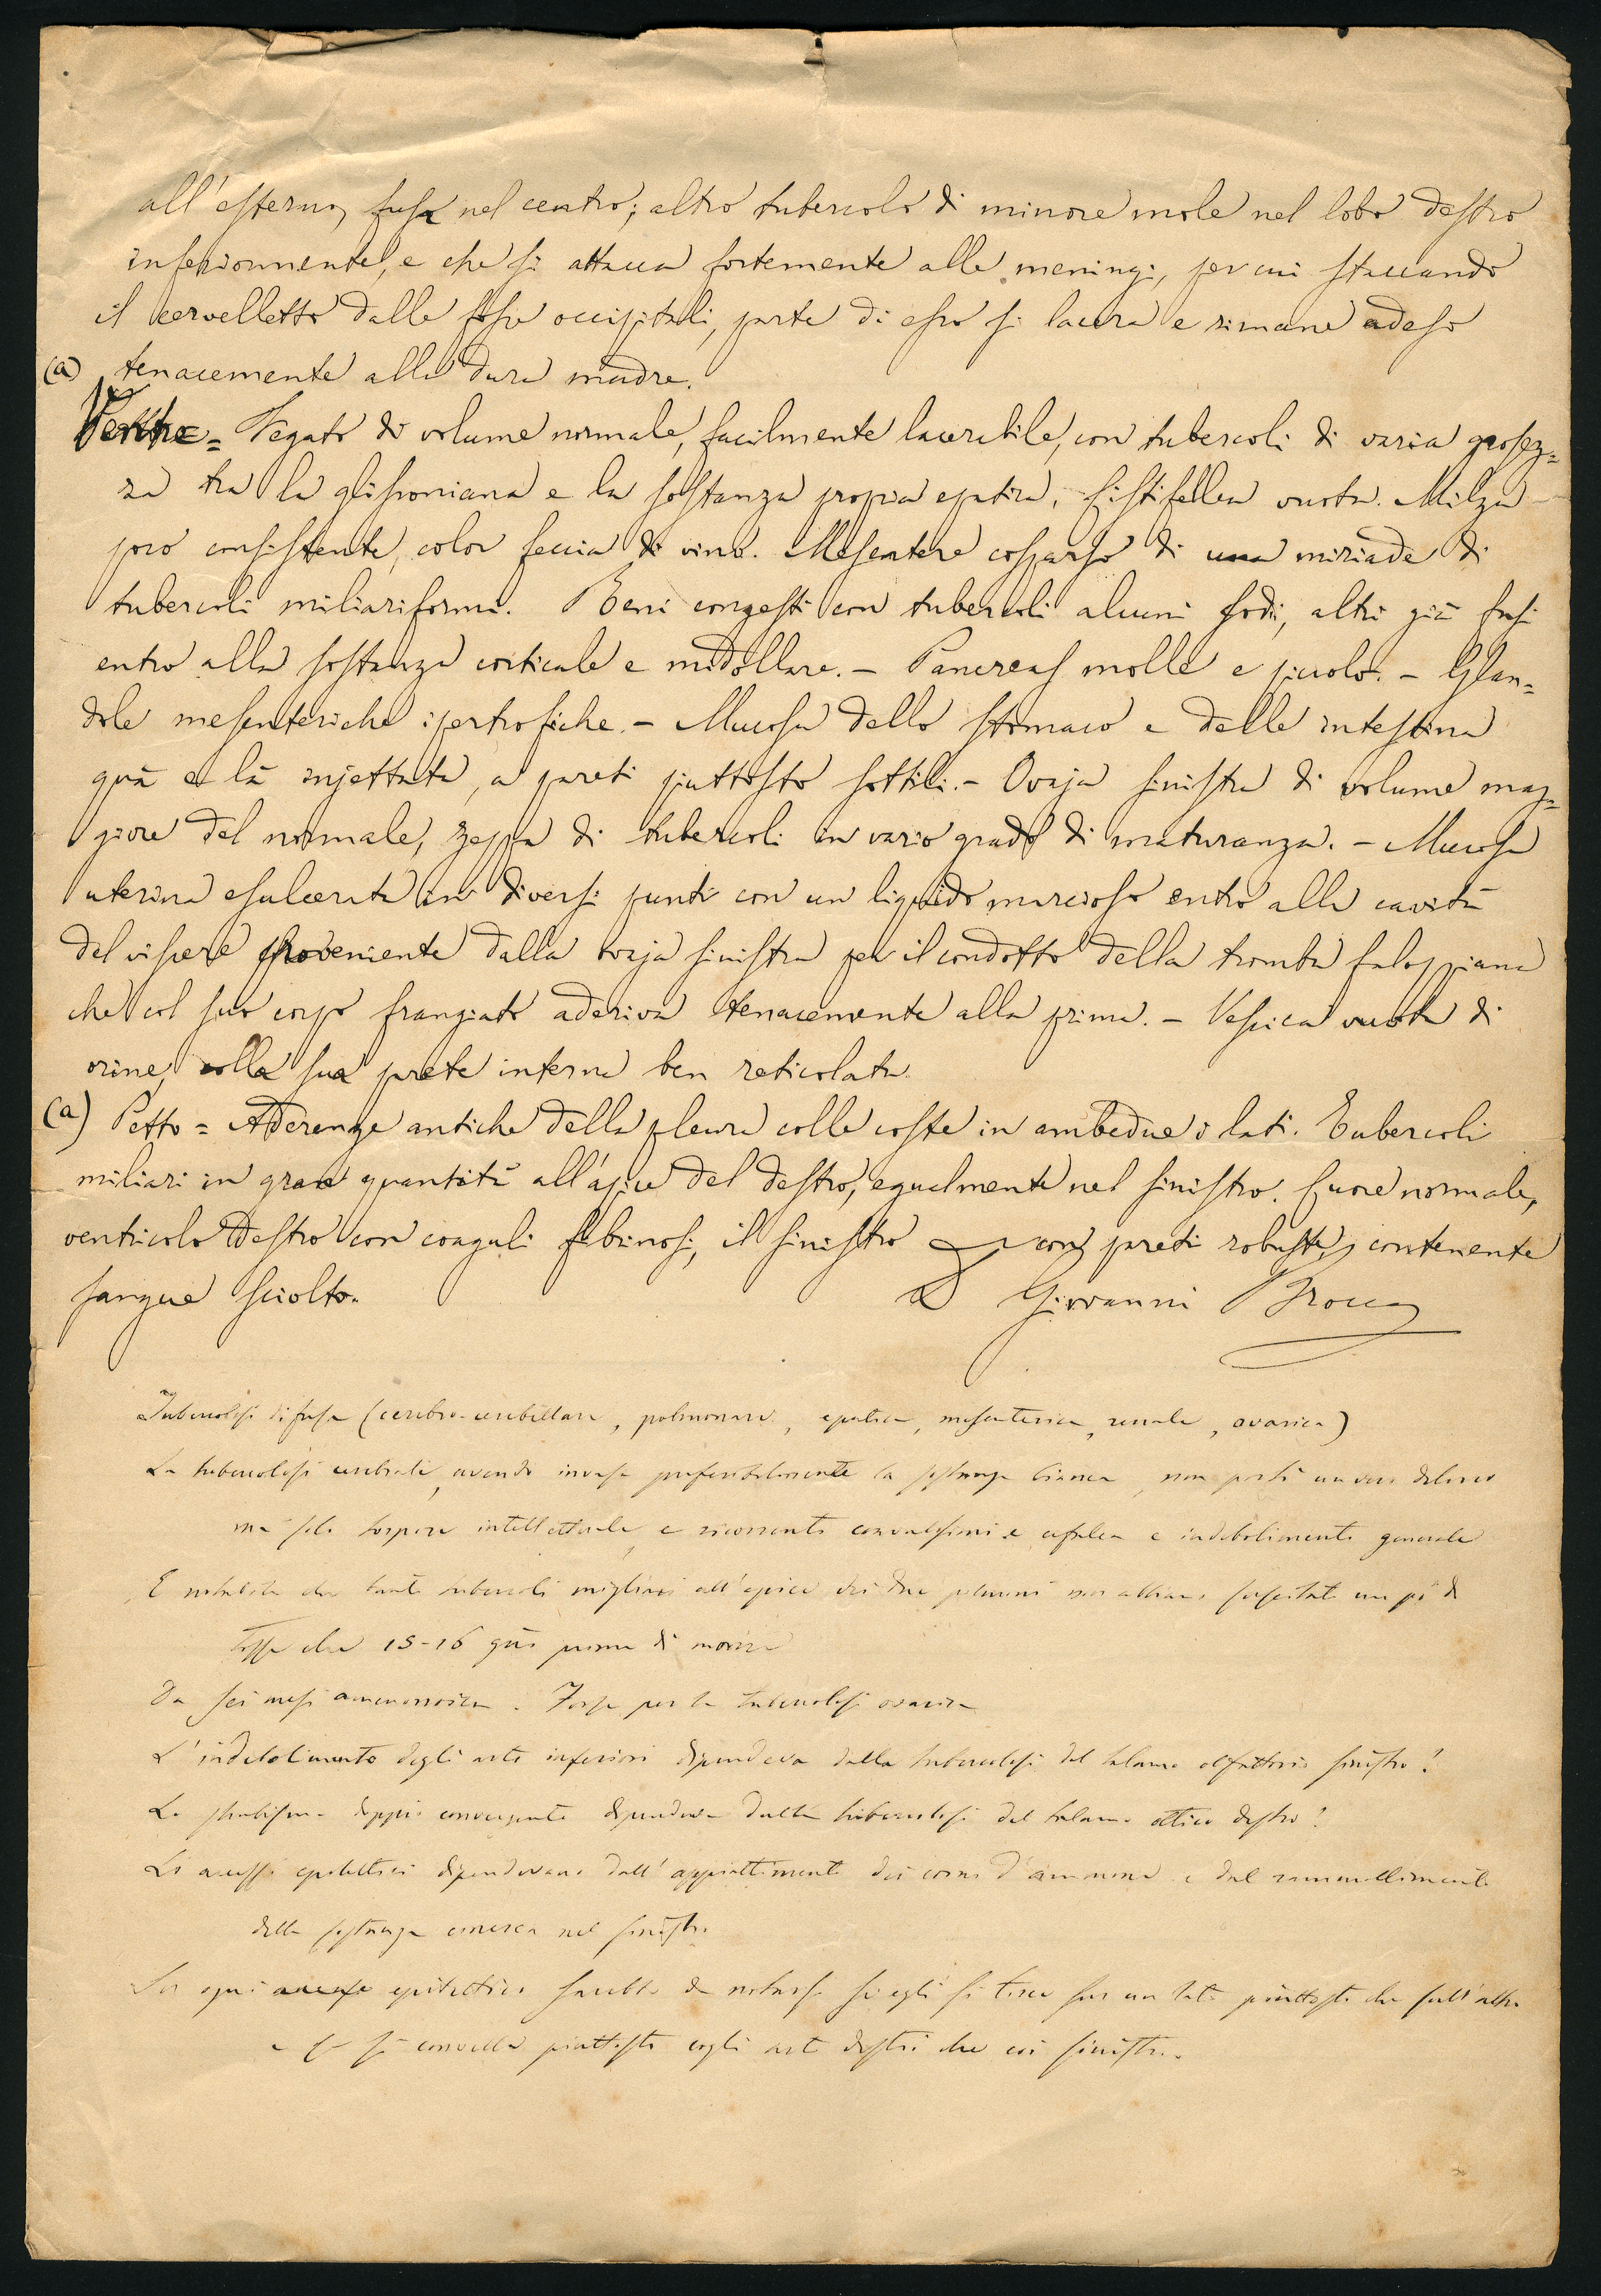 all'esterno, fusa nel centro; altro tubercolo di minore mole nel lobo destro
inferiormente, e che si attacca fortemente alle meningi, per cui staccando
il cervelletto dalle fosse occipitali, parte di esso si lacera e rimane adeso
(a) tenacemente alla dura madre.
Ventre = Fegato di volume normale, facilmente lacerabile, con tubercoli di varia grossez=
za tra la glissoniana e la sostanza propria epatica. Cistifellea vuota. Milza
poco consistente, color feccia di vino. Mesentere cosparso di una miriade di
tubercoli miliariformi. Reni congesti con tubercoli alcuni sodi, altri già fusi
entro alla sostanza corticale e midollare. - Pancreas molle e piccolo. - Glan=
dole mesenteriche ipertrofiche. - Mucosa dello stomaco e delle intestina
quà e là injettata, a pareti piuttosto sottili. - Ovaja sinistra di volume mag=
giore del normale, zeppa di tubercoli in vario grado di maturanza. - Mucosa
uterina esulcerata in diversi punti con un liquido marcioso entro alla cavità
del viscere proveniente dalla ovaja sinistra per il condotto della tromba faloppiana
che col suo corpo frangiato aderiva tenacemente alla prima. - Vescica vuota di
orine, colla sua parete interna ben reticolata.
(a) Petto = Aderenze antiche della pleura colle coste in ambedue i lati. Tubercoli
miliari in gran quantità all'apice del destro, egualmente nel sinistro. Cuore normale,
ventricolo destro con coaguli fibrinosi, il sinistro con pareti robuste, contenente
sangue sciolto.
D Giovanni Brocca
Tubercolosi difusa (cerebro-cerebellare, polmonare, epatica, mesenterica, renale, ovarica)
La tubercolosi cerebrale, avendo invasa preferibilmente la sostanza bianca, non portò un vero delirio
ma solo torpore intellettuale, e ricorrenti convulsioni e cefalea e indebolimento generale
È notabile che tanti tubercoli migliari all'apice dei due polmoni non abbiano suscitato un pò di
tosse che 15-16 gni prima di morire
Da sei mesi amenorroica. Forse per la tubercolosi ovarica
L'indebolimento degli arti inferiori dipendeva dalla tubercolosi del talamo olfattorio sinistro?
Lo strabismo doppio convergente dipendeva dalla tubercolosi del talamo ottico destro?
Li accessi epilettici dipendevano dall'appiattimento dei corni d'ammone e dal rammollimento
della sostanza cinerea nel sinistro
In ogni accesso epilettico sarebbe da notarsi se egli si torce su un lato piuttosto che sull'altro
e se si convelle piuttosto cogli arti destri che coi sinistri.